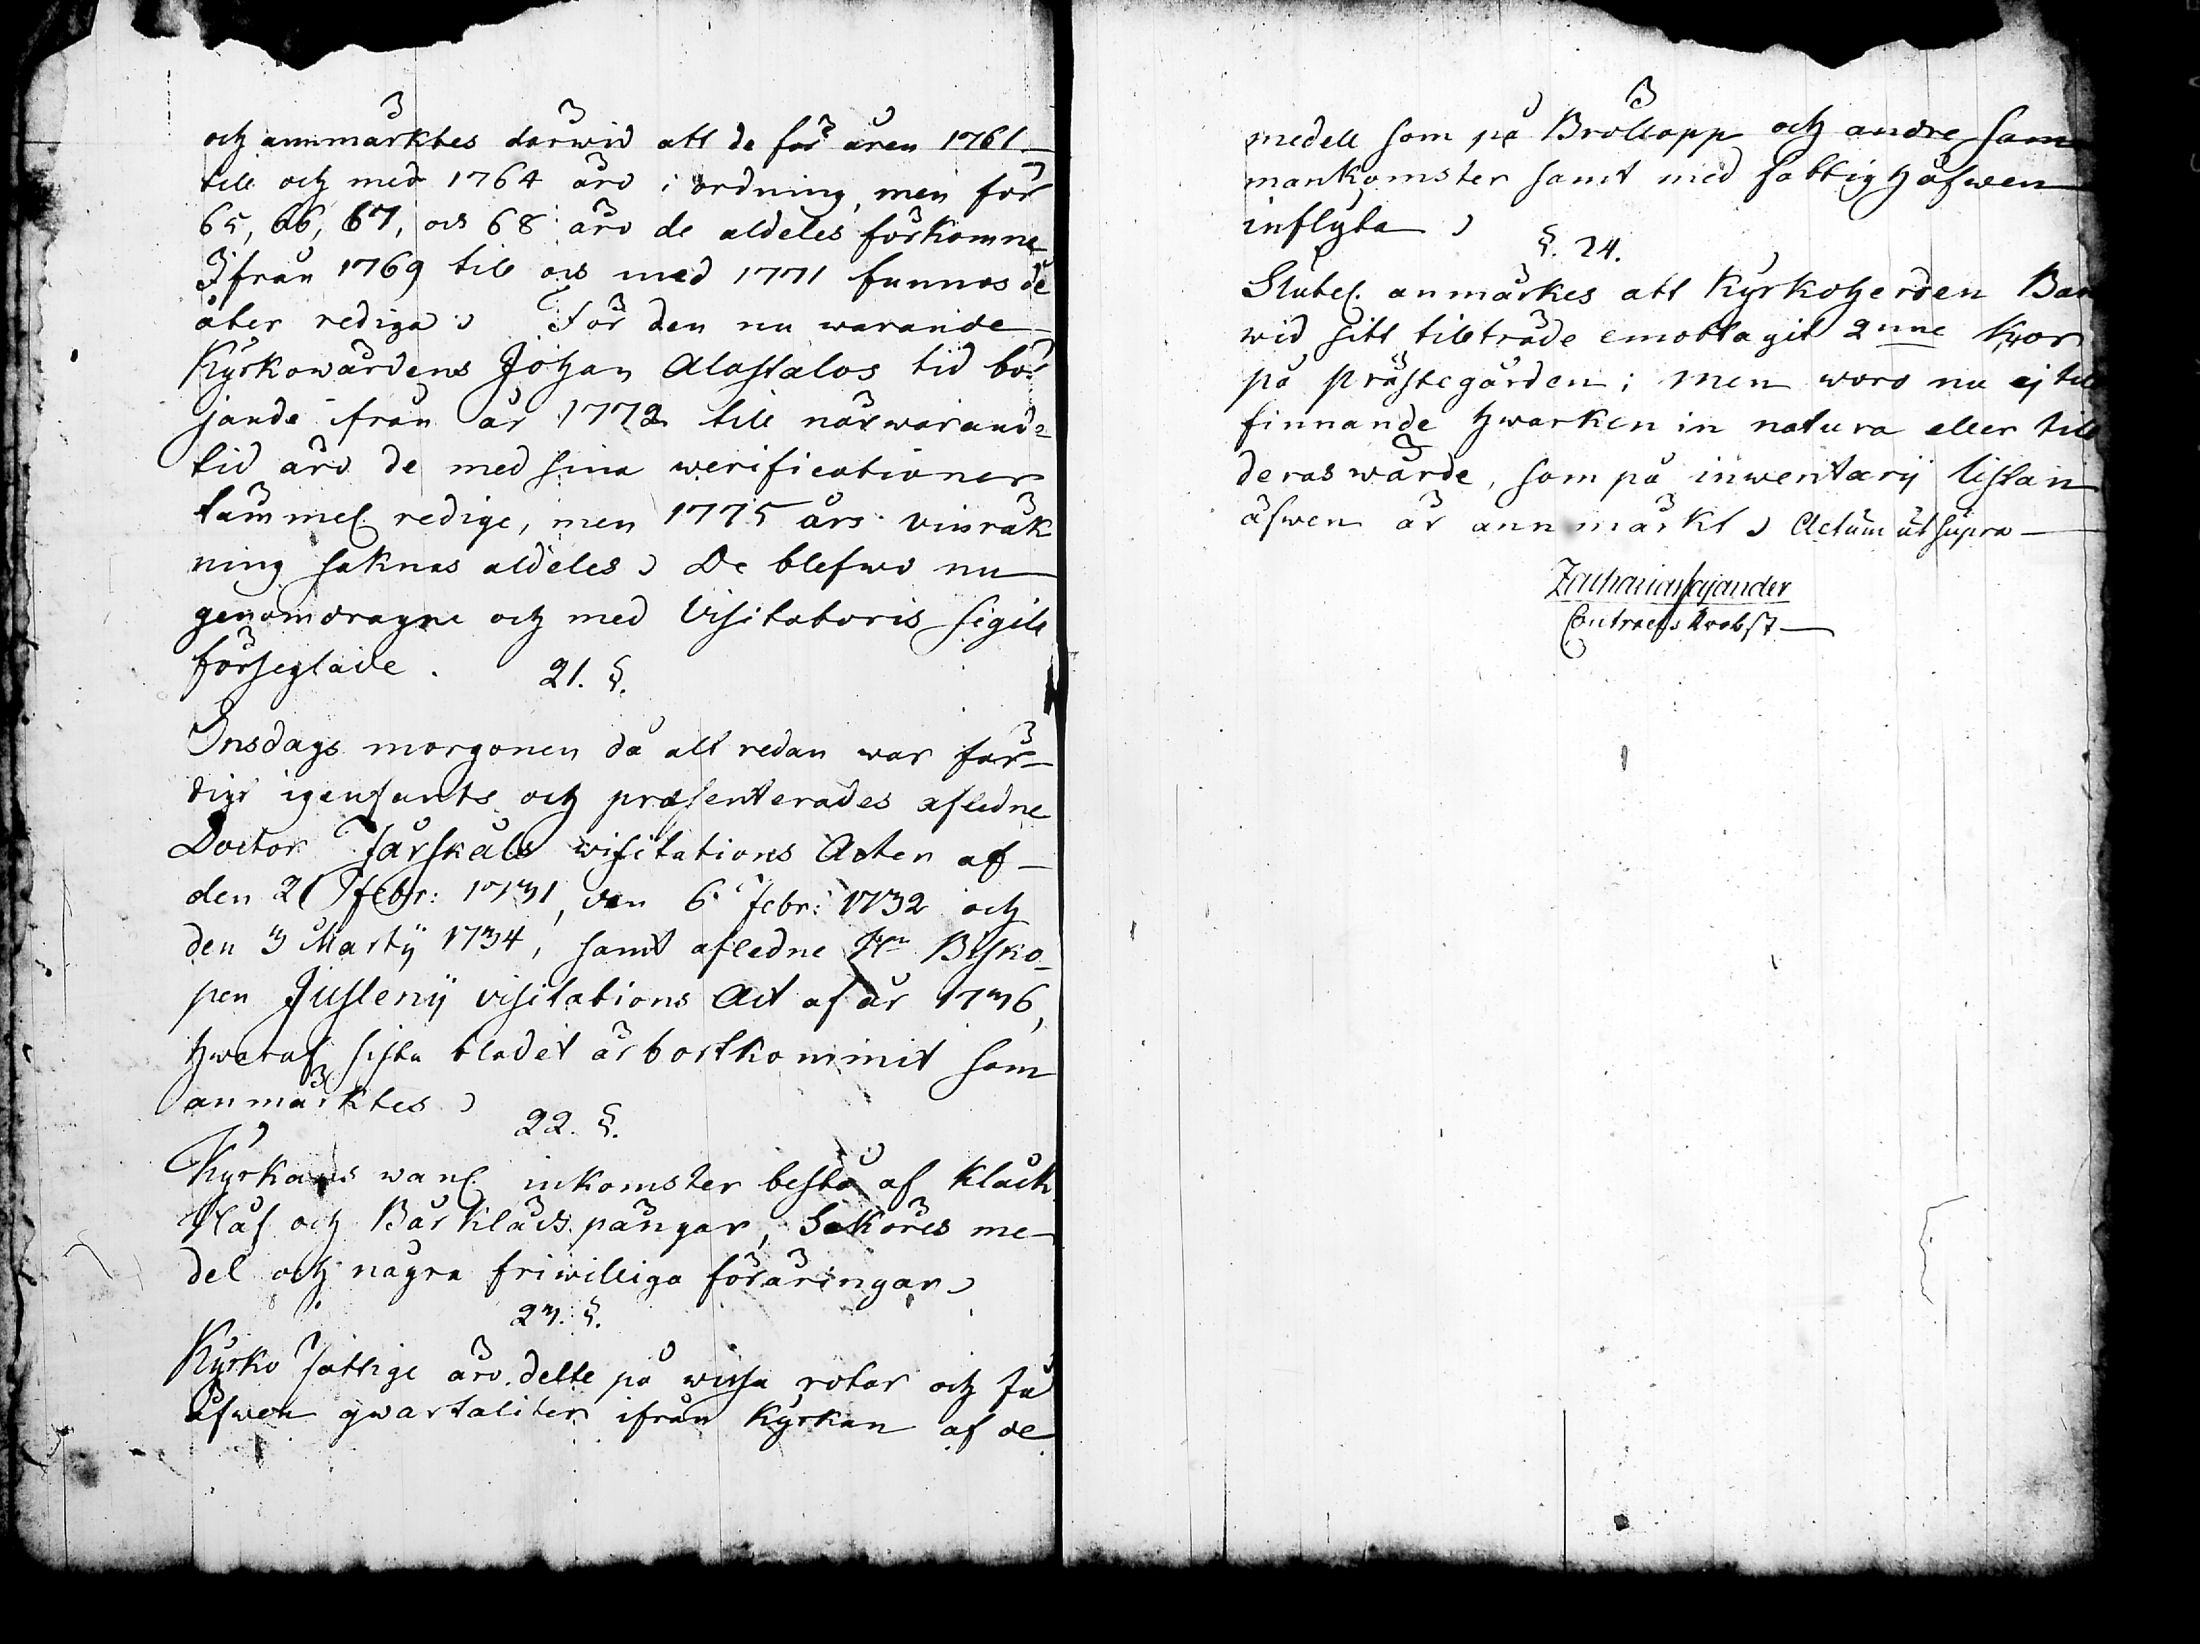 och annmärktes därwid att de för åren 1761
till och med 1764 äro i ordning, men för
65, 66, 67, och 68 äro de aldeles förkomne
Ifrån 1769 till och med 1771 funnos de
åter rediga. För den nu warande
Kyrkowärdens Johan Alastalos tid bör
jande ifrån år 1772 till närwarande
tid äro de med sina werificationer
tämmel. redige, men 1775 års vinräk
ning saknas aldeles. De blefwo nu
genomdragne och med Visitatoris sigill
förseglade.
21. §.
Onsdags morgonen då alt redan war fär-
digt igenfants och præsenterades afledne
Doctor Farskåls wisitations Acter af
den 21 Febr: 1731, den 6 Febr: 1732 och
den 3 Martÿ 1734, samt afledne Hrn Bisko-
pen Juslenÿ visitations Act af år 1736,
hwaraf sista bladet är bortkommit som
anmärktes.
22. §.
Kyrkans wanl. inkomster bestå af Klåck
Håf och Bårklädspängar, Sakören me-
del och några friwilliga föräringar.
23. §.
Kyrko Fattige äro delte på wissa rotar och få
äfwen qwartaliter ifrån Kyrkan af de
medell som på Bröllopp och andre sam
mankomster samt med fattig håfwen
inflyta.
§. 24.
Slutel. anmärkes att Kyrkoherden
wid sitt tillträde emottagit 2nne Kor
på prästegården; men woro nu ej till
finnande hwarken in natura eller till
deras wärde, som på inwentarÿ listan
äfwen är annmärkt. Actum ut supra
Zacharias Cajander
Contracts Probst